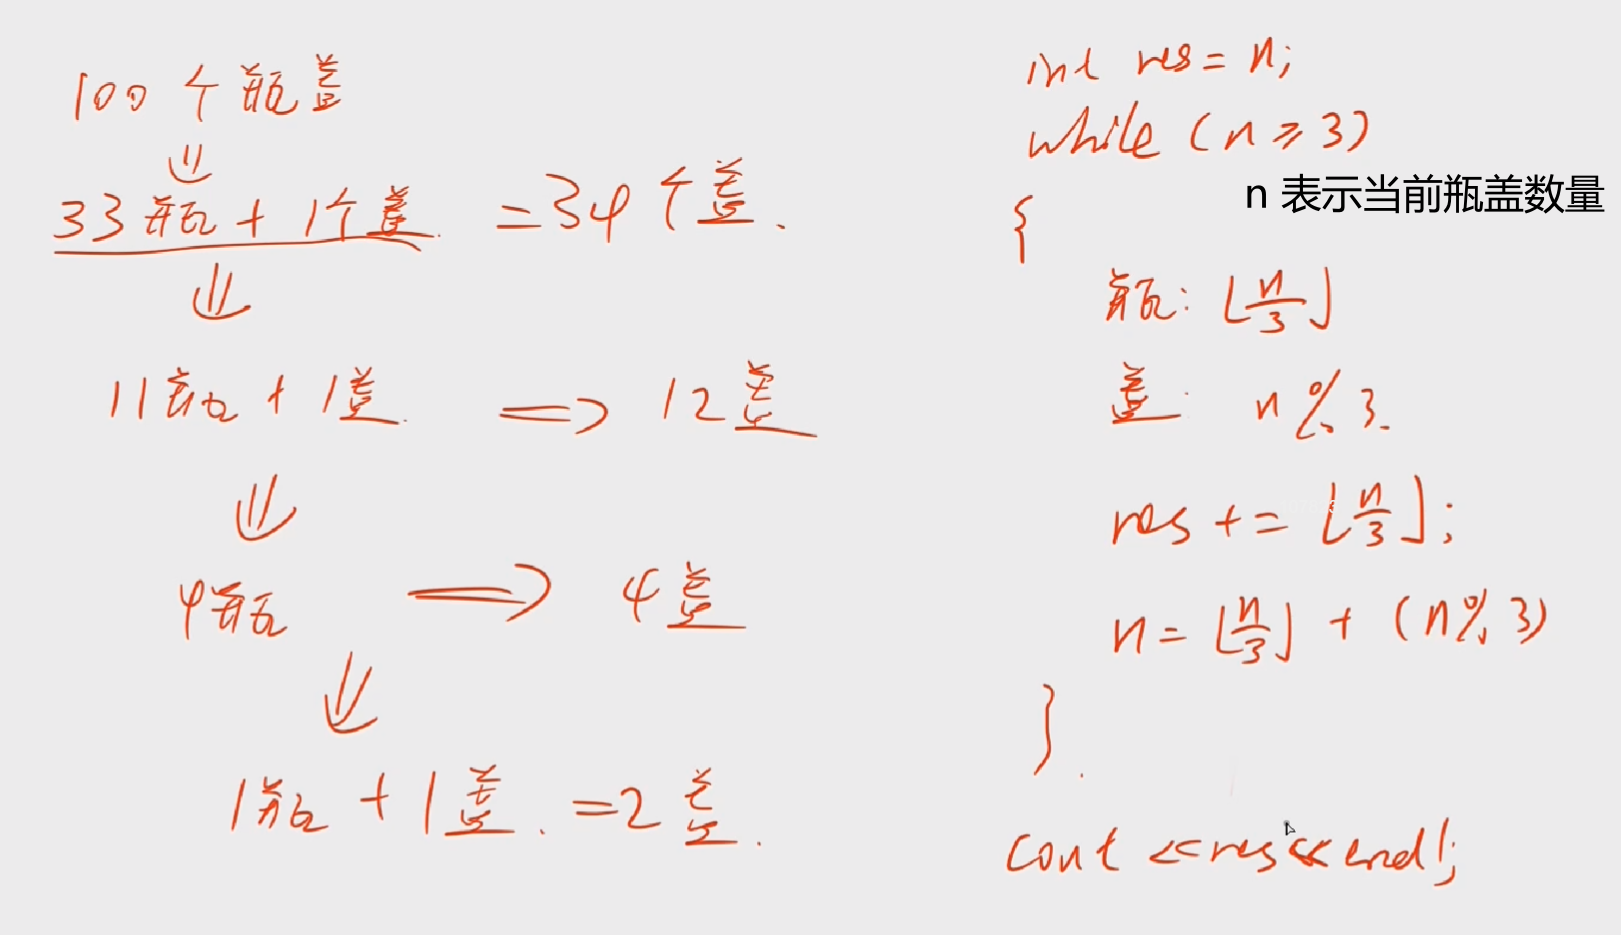 100个瓶盖
⇓
33瓶 + 1个盖 = 34个盖.
⇓
11瓶 + 1盖. ⇒ 12盖
⇓
4瓶 ⇒ 4盖
⇓
1瓶 + 1盖. = 2盖.
int res = n;
while (n ≥ 3)
n 表示当前瓶盖数量
{
瓶: ⌊n/3⌋
盖: n % 3.
res += ⌊n/3⌋;
n = ⌊n/3⌋ + (n % 3)
}.
cout << res << endl;